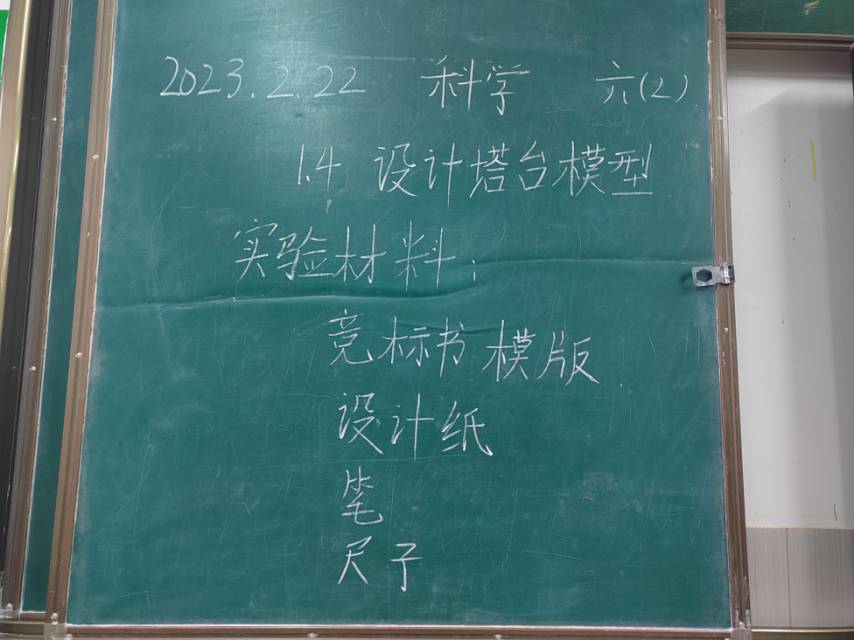 2023.2.22 科学 六(2)
1.4 设计塔台模型
实验材料:
竞标书模版
设计纸
笔
尺子